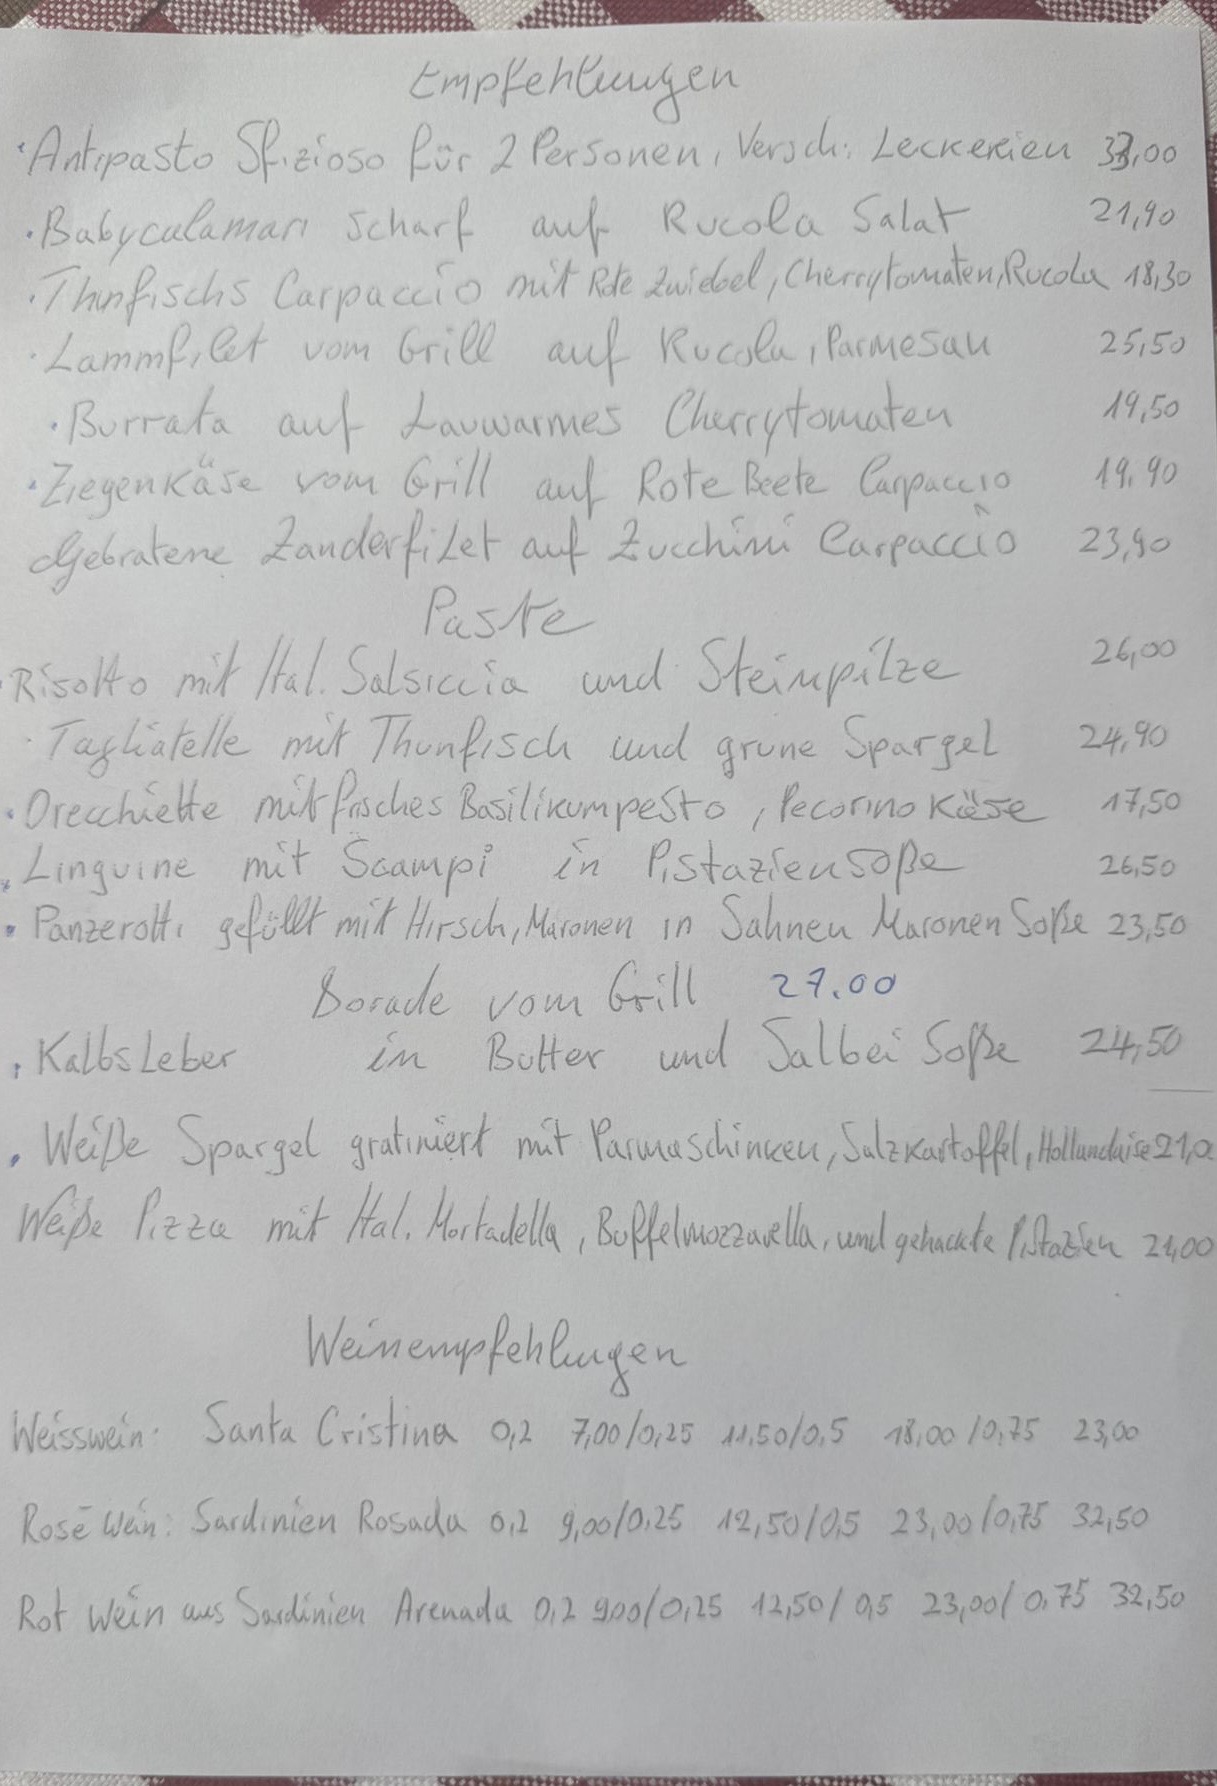 Empfehlungen
· Antipasto Sfizioso für 2 Personen, Versch. Leckereien 33,00
· Babycalamari scharf auf Rucola Salat 21,90
· Thunfischs Carpaccio mit Rote Zwiebel, Cherrytomaten, Rucola 18,30
· Lammfilet vom Grill auf Rucola, Parmesan 25,50
· Burrata auf Lauwarmes Cherrytomaten 19,50
· Ziegenkäse vom Grill auf Rote Beete Carpaccio 19,90
Gebratene Zanderfilet auf Zucchini Carpaccio 23,90
Paste
· Risotto mit Ital. Salsiccia und Steinpilze 26,00
· Tagliatelle mit Thunfisch und grüne Spargel 24,90
· Orecchiette mit frisches Basilikumpesto, Pecorino Käse 17,50
· Linguine mit Scampi in Pistaziensoße 26,50
· Panzerotti gefüllt mit Hirsch, Maronen in Sahnen Maronen Soße 23,50
Dorade vom Grill 27.00
· Kalbsleber in Butter und Salbei Soße 24,50
· Weiße Spargel gratiniert mit Parmaschinken, Salzkartoffel, Hollandaise 21,0
Weiße Pizza mit Ital. Mortadella, Buffelmozzarella, und gehackte Pistazien 21,00
Weinempfehlungen
Weisswein: Santa Cristina 0,2 7,00/0,25 11,50/0,5 18,00/0,75 23,00
Rosé Wein: Sardinien Rosada 0,2 9,00/0,25 12,50/0,5 23,00/0,75 32,50
Rot Wein aus Sardinien Arenada 0,2 9,00/0,25 12,50/0,5 23,00/0,75 32,50